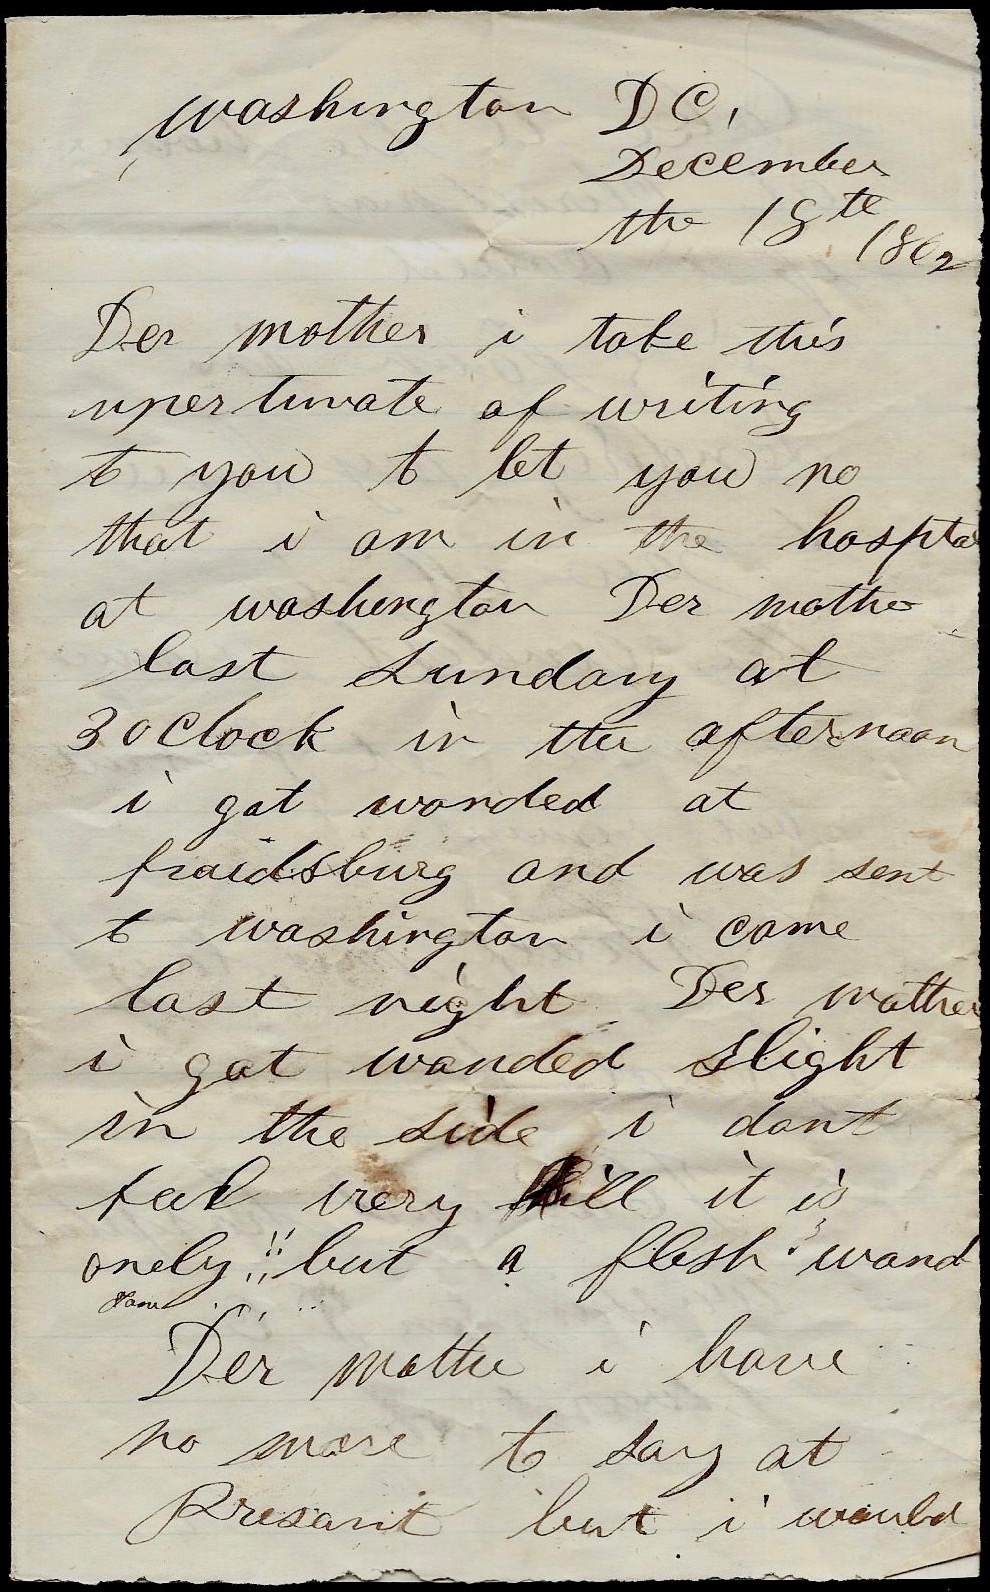 Washington DC,
December
the 18th
1862
Der mother i take this
upertunate of writing
to you to let you no
that i am in the hospta
at washington Der mothe
last Sunday at
3 oclock in the afternoon
i got wonded at
fraidsburg and was sent
to washington i come
last night Der mother
i got wonded slight
in the side i dont
feel very ill it is
onely but a flesh wond
Der mothe i have
no more to say at
Presant but i would